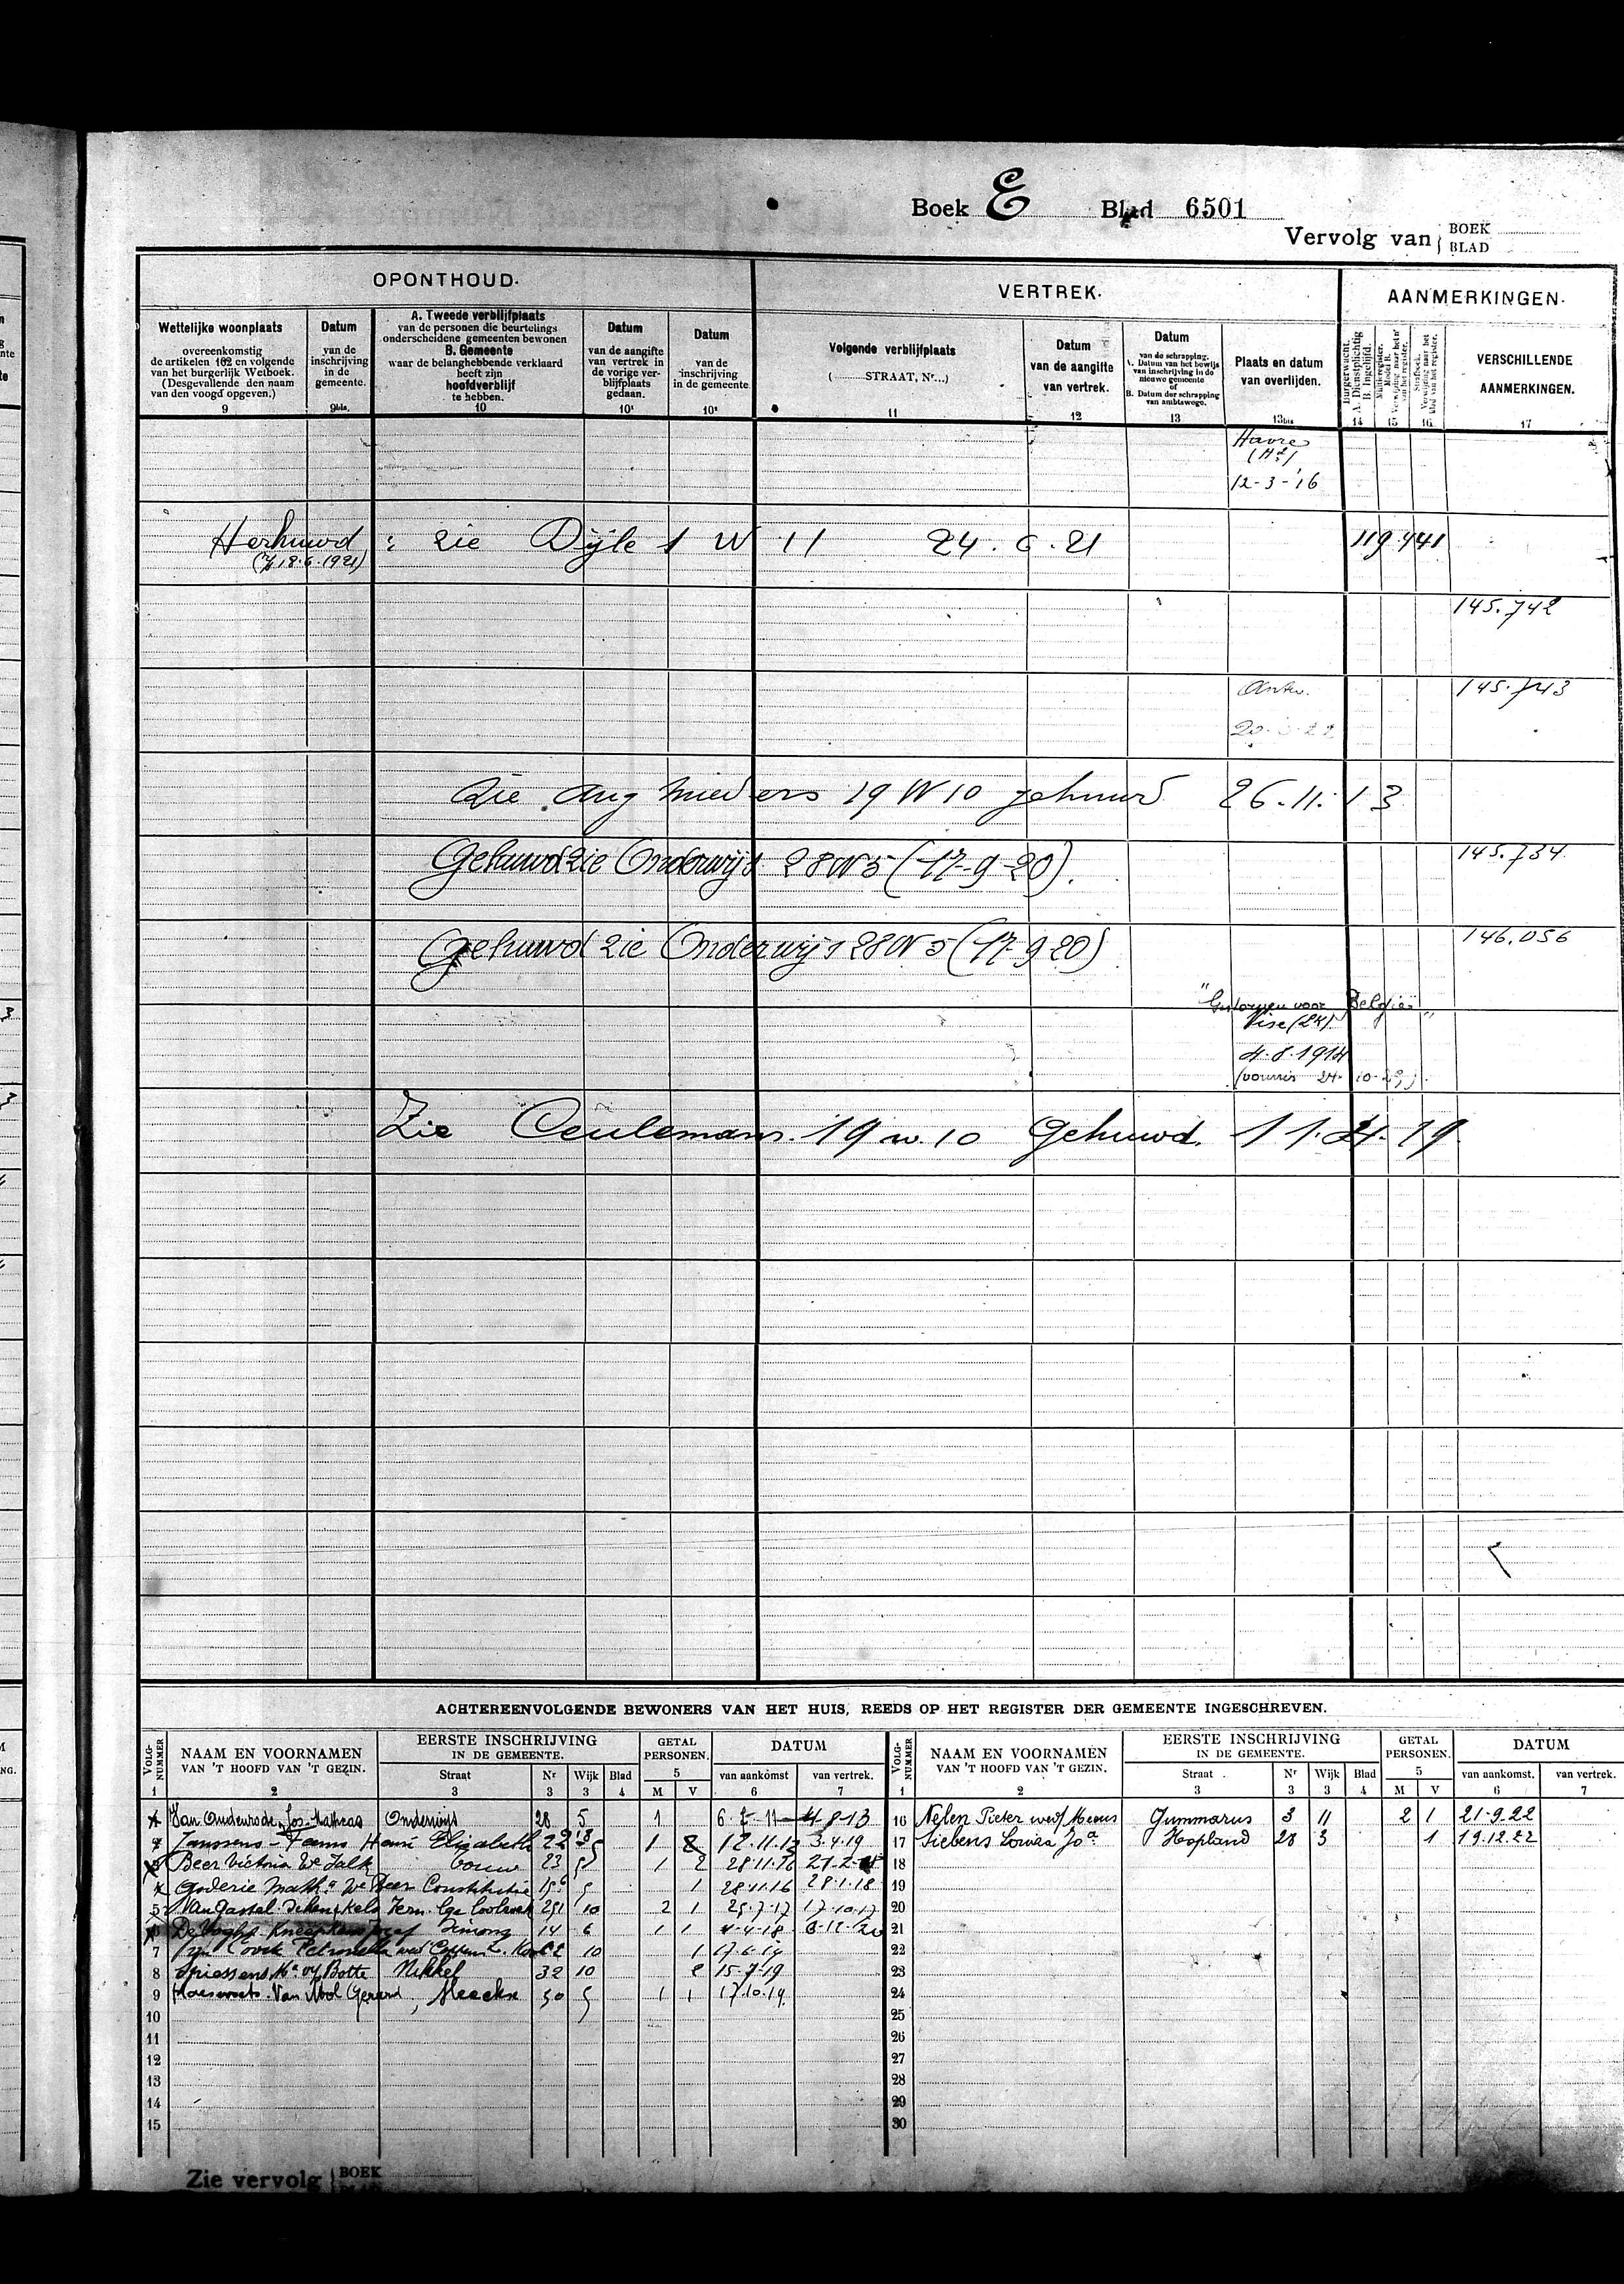 Boek E Blad 6501
Vervolg van { BOEK
BLAD
OPONTHOUD.
VERTREK.
AANMERKINGEN.
Wettelijke woonplaats
overeenkomstig
de artikelen 102 en volgende
van het burgerlijk Wetboek.
(Desgevallende den naam
van den voogd opgeven.)
9
Datum
van de
inschrijving
in de
gemeente.
9bis.
A. Tweede verblijfplaats
van de personen die beurtelings
onderscheidene gemeenten bewonen
B. Gemeente
waar de belanghebbende verklaard
heeft zijn
hoofdverblijf
te hebben.
10
Datum
van de aangifte
van vertrek in
de vorige ver-
blijfplaats
gedaan.
10¹
Datum
van de
inschrijving
in de gemeente
10²
Volgende verblijfplaats
( STRAAT, Nr...)
11
Datum
van de aangifte
van vertrek.
12
Datum
van de schrapping.
A. Datum van het bewijs
van inschrijving in de
nieuwe gemeente
of
B. Datum der schrapping
van ambtswege.
13
Plaats en datum
van overlijden.
13bis
Burgerwacht.
A. Dienstplichtig
B. Ingelijfd.
14
Militieregister.
Model B.
Verwijzing naar het nr
van het register.
15
Strafboek.
Verwijzing naar het
blad van het register.
16
VERSCHILLENDE
AANMERKINGEN.
17
Havre
12-3-'16
Herhuwd : zie Dijle 1 W 11 24.6.21 119.441
145.742
Antw. 145.743
Zie Aug 19 W 10 gehuwd 26.11.13
Gehuwd zie Onderwijs 28 W 5 (17-9-20). 145.734
Gehuwd zie Onderwijs 28 W 5 (17-9 20) 146.056
"Gestorven voor België"
Vise
4.8.1914
Zie Ceulemans. 19 w. 10 Gehuwd. 11.4.19
ACHTEREENVOLGENDE BEWONERS VAN HET HUIS, REEDS OP HET REGISTER DER GEMEENTE INGESCHREVEN.
VOLG-NUMMER
1
NAAM EN VOORNAMEN
VAN 'T HOOFD VAN 'T GEZIN.
2
EERSTE INSCHRIJVING
IN DE GEMEENTE.
Straat Nr Wijk Blad
3 3 3 4
GETAL
PERSONEN.
5
M V
DATUM
van aankomst van vertrek.
6 7
VOLG-NUMMER
1
NAAM EN VOORNAMEN
VAN 'T HOOFD VAN 'T GEZIN.
2
EERSTE INSCHRIJVING
IN DE GEMEENTE.
Straat Nr Wijk Blad
3 3 3 4
GETAL
PERSONEN.
5
M V
DATUM
van aankomst. van vertrek.
6 7
Van Oudenrode Jos. Matheas Onderwijs 28 5 1 4-8-13
Janssens - Henri Elizabeth 1 12.11.13 3.4.19
Beer Victoria We Falk bouw 23 5 1 2 28.11.16
Goderie We Beer Constitutie 5 1 28.11.16 28.1.18
5 Van Gastel 251 10 2 1 25.7.17 17-10-17
De Voght 14 6 1 1 4-4-18
7 10 1 17-6-19
8 Driessens Botte Nikkel 32 10 2 15-7-19
9 Van Mol Gerard, 50 5 1 1 17.10.19
10
11
12
13
14
15
16 Nelen Pieter wed Meeus Gummarus 3 11 2 1 21-9.22
17 Siebens Louisa Hopland 28 3 1 19.12.22
18
19
20
21
22
23
24
25
26
27
28
29
30
Zie vervolg { BOEK